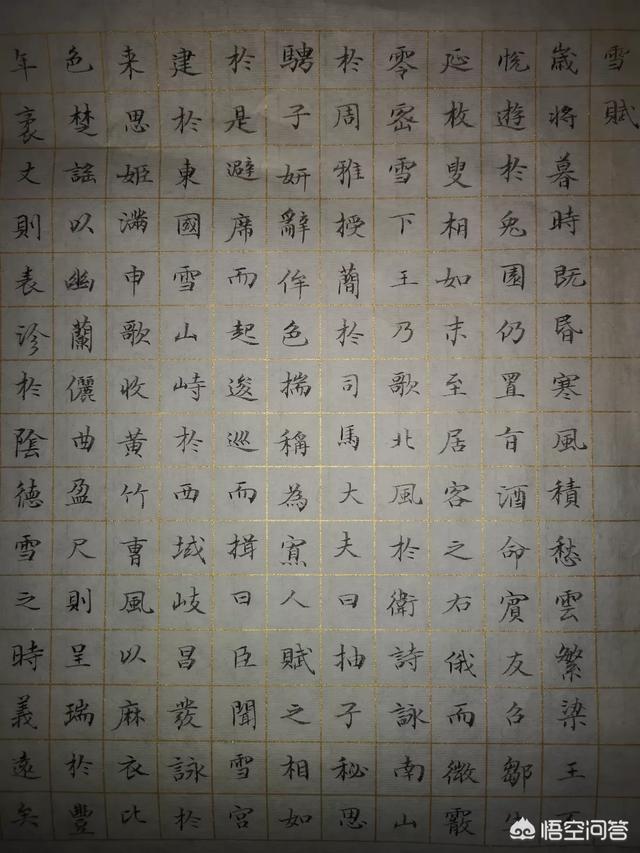 雪賦
歳將暮時既昏寒風積愁雲繁梁王不
悅遊於兔園仍置旨酒命賓友召鄒生
延枚叟相如末至居客之右俄而微霰
零密雪下王乃歌北風於衛詩詠南山
於周雅授蕳於司馬大夫曰抽子秘思
騁子妍辭侔色揣稱為寡人賦之相如
於是避席而起逡巡而揖曰臣聞雪宮
建於東國雪山峙於西域岐昌發詠於
来思姬滿申歌收黄竹曹風以麻衣比
色楚謠以幽蘭儷曲盈尺則呈瑞於豐
年袤丈則表沴於陰德雪之時義遠矣
悟空问答